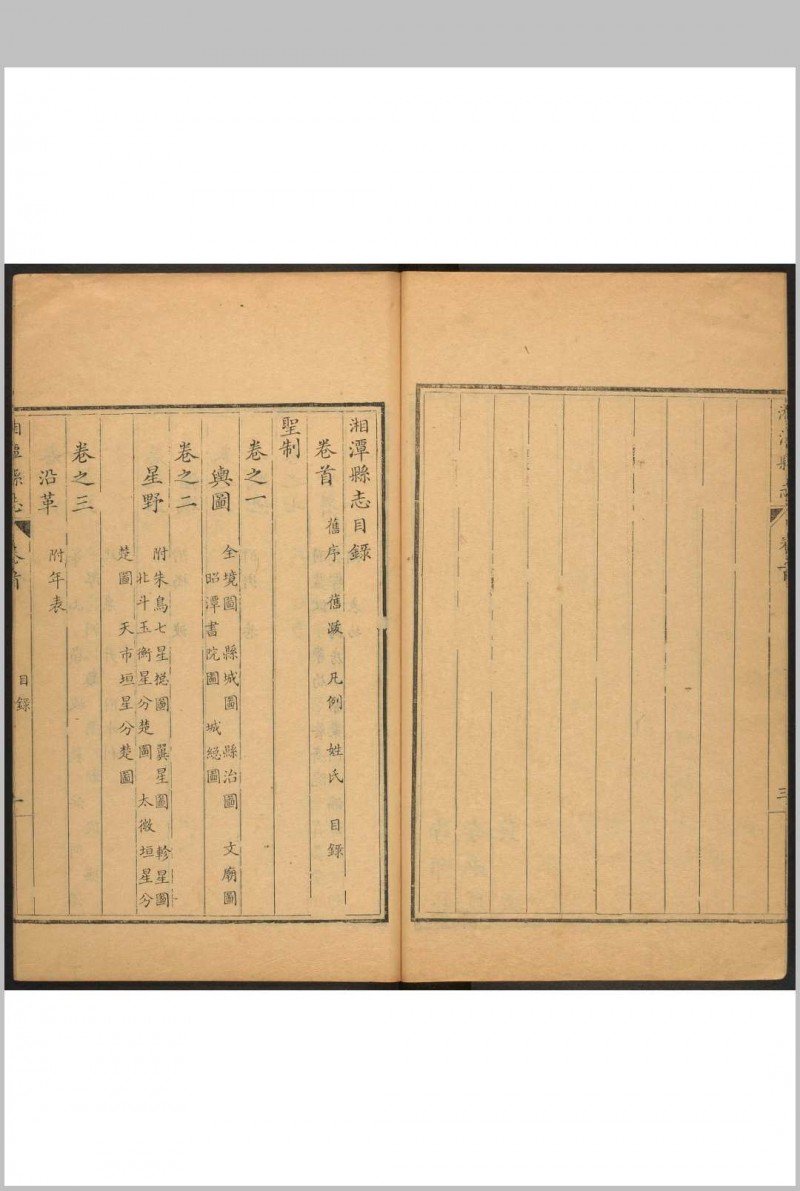 湘潭縣志
卷首
三
湘潭縣志目錄
卷首
舊序 舊跋 凡例 姓氏 目錄
聖制
卷之一
輿圖
全境圖 縣城圖 縣治圖 文廟圖
昭潭書院圖 城總圖
卷之二
星野
附朱鳥七星總圖 翼星圖 軫星圖
北斗玉衡星分楚圖 太微垣星分
楚圖 天市垣星分楚圖
卷之三
沿革
附年表
湘潭縣志
卷首
目錄
一